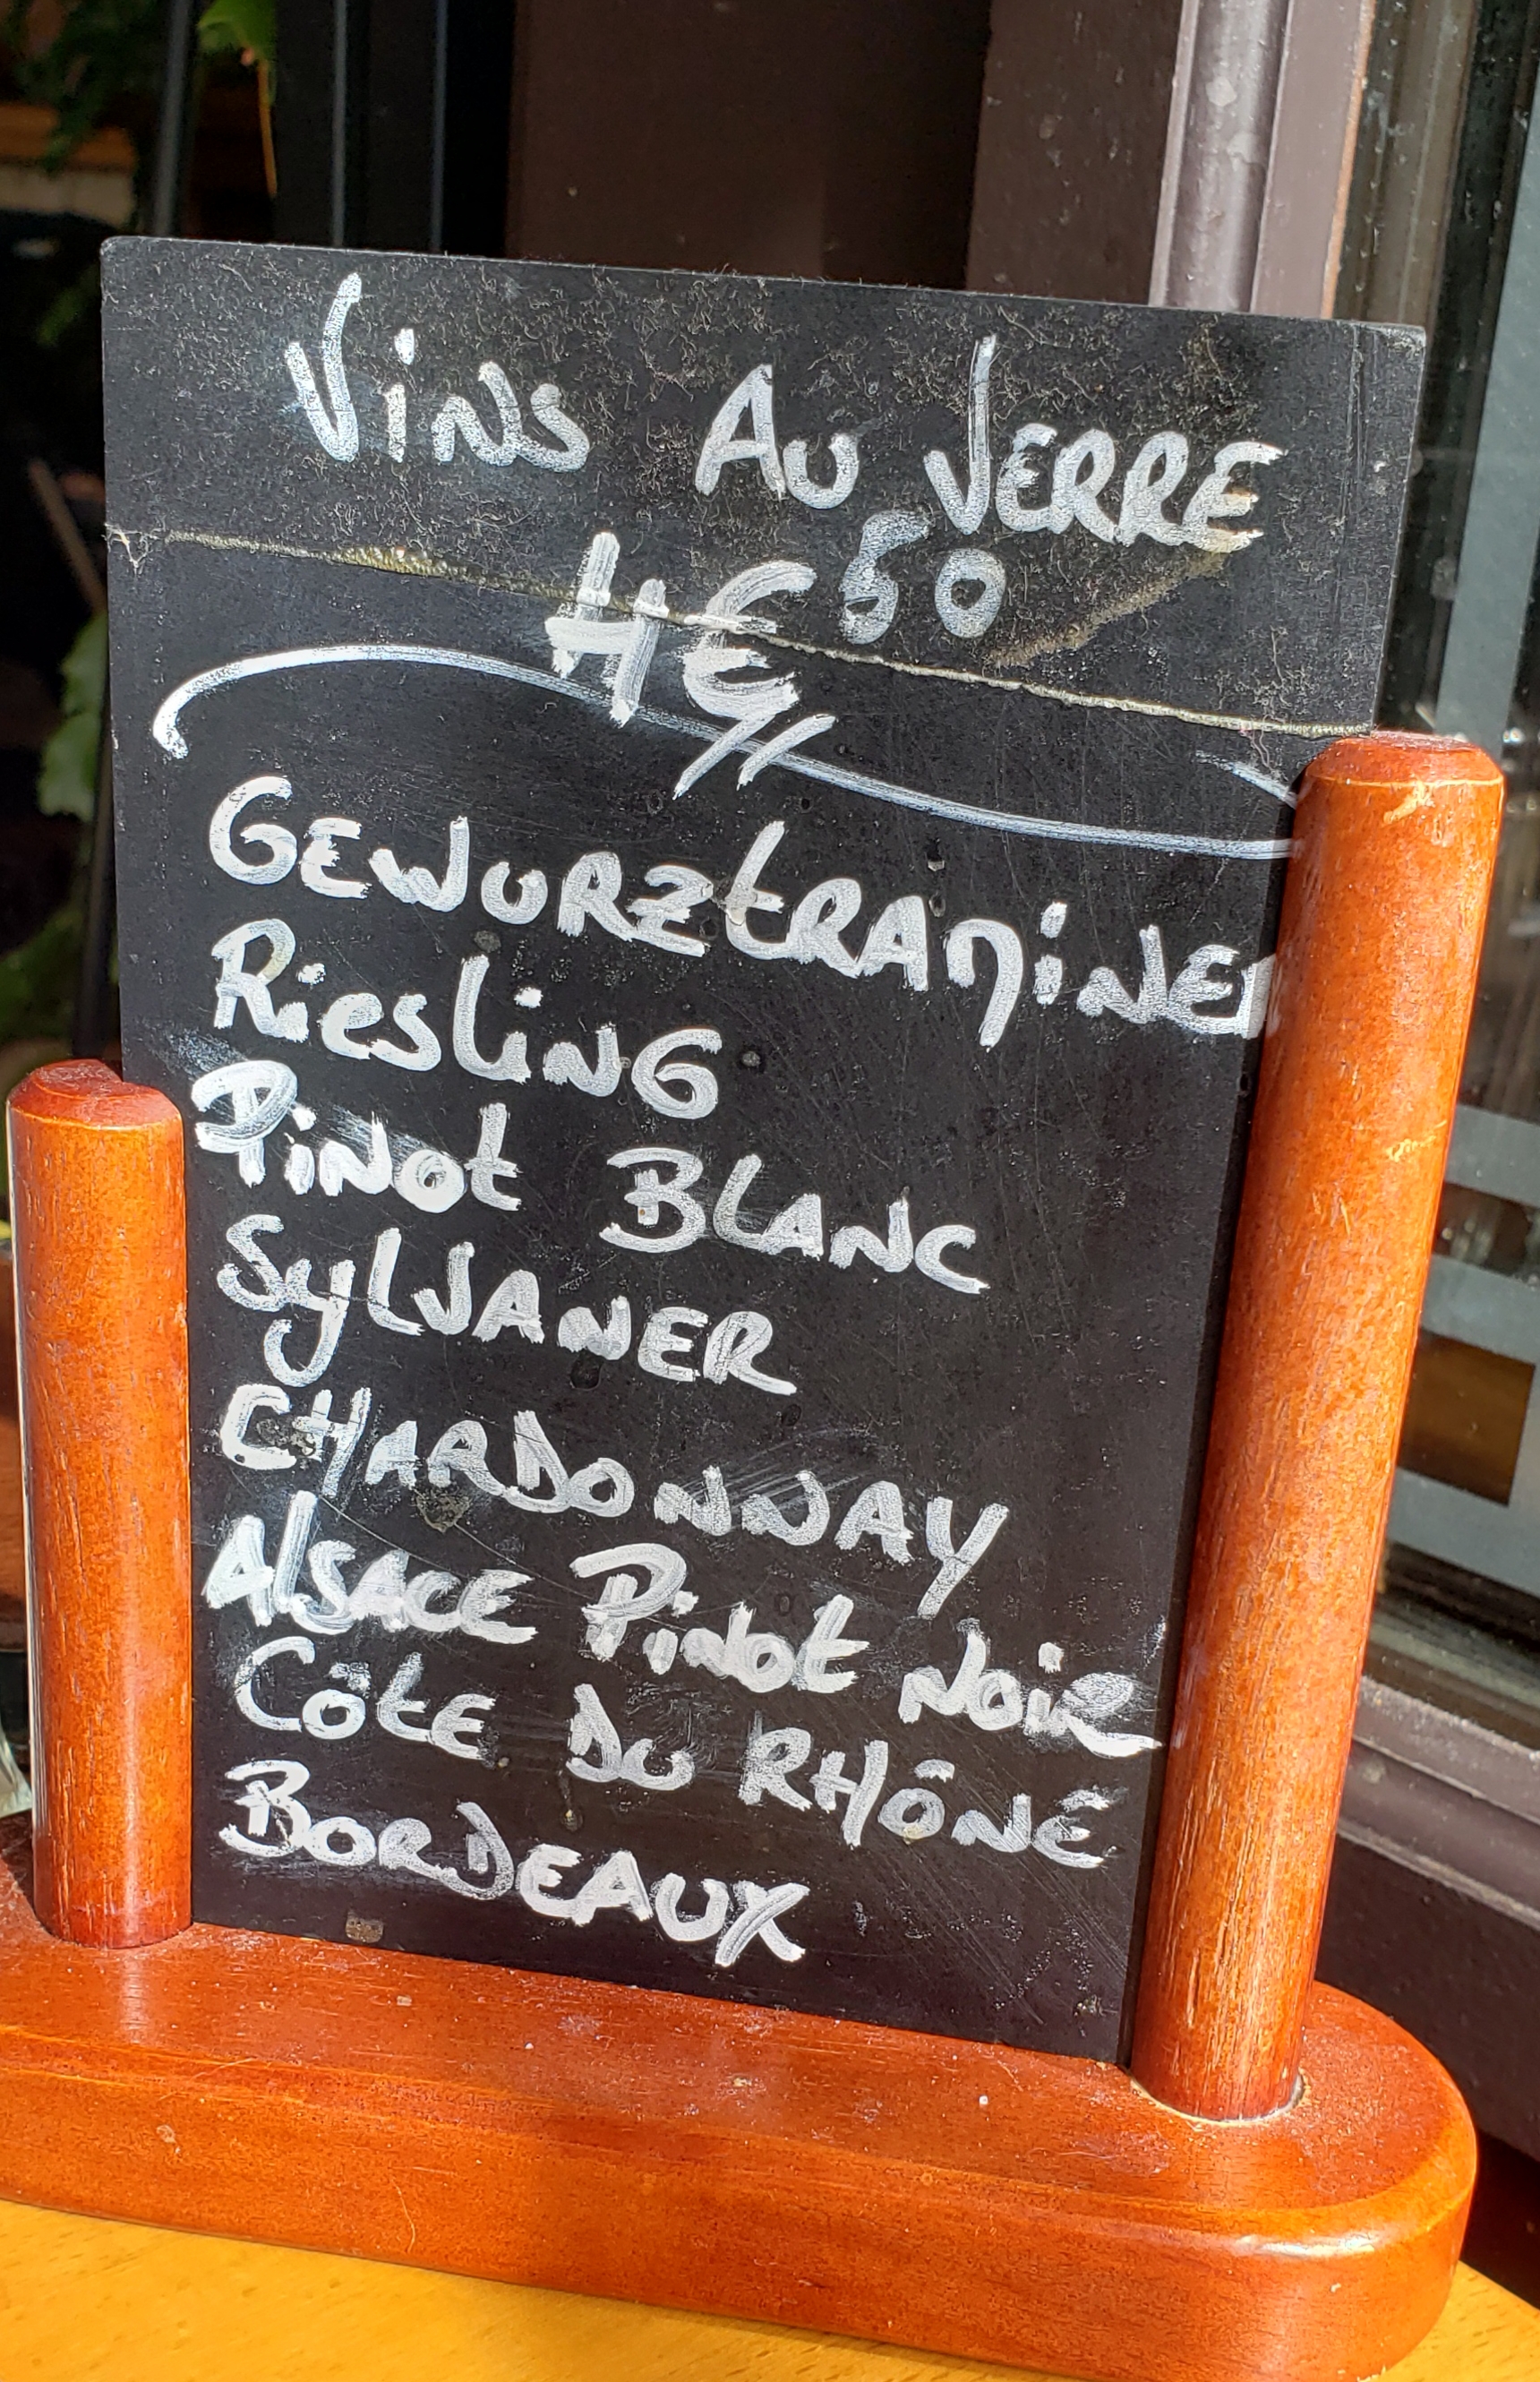 Vins Au VERRE
4€50
GEWURZtRAMiNER
RiesliNG
PiNot BLANC
SylVANER
CHARDONNAY
AlSACE PiNot NoiR
CôtE DU RHÔNE
BORDEAUX